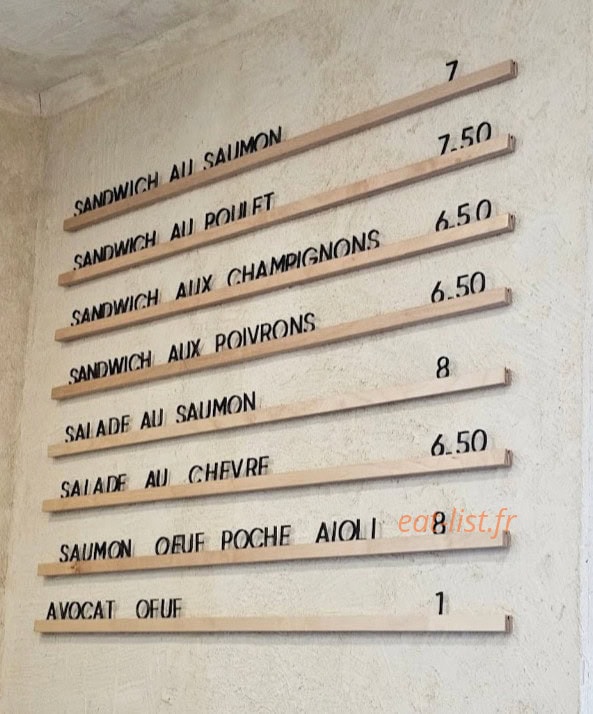 SANDWICH AU SAUMON 7
SANDWICH AU POULET 7.50
SANDWICH AUX CHAMPIGNONS 6.50
SANDWICH AUX POIVRONS 6.50
SALADE AU SAUMON 8
SALADE AU CHEVRE 6.50
SAUMON OEUF POCHE AIOLI 8
eat-list.fr
AVOCAT OEUF 1